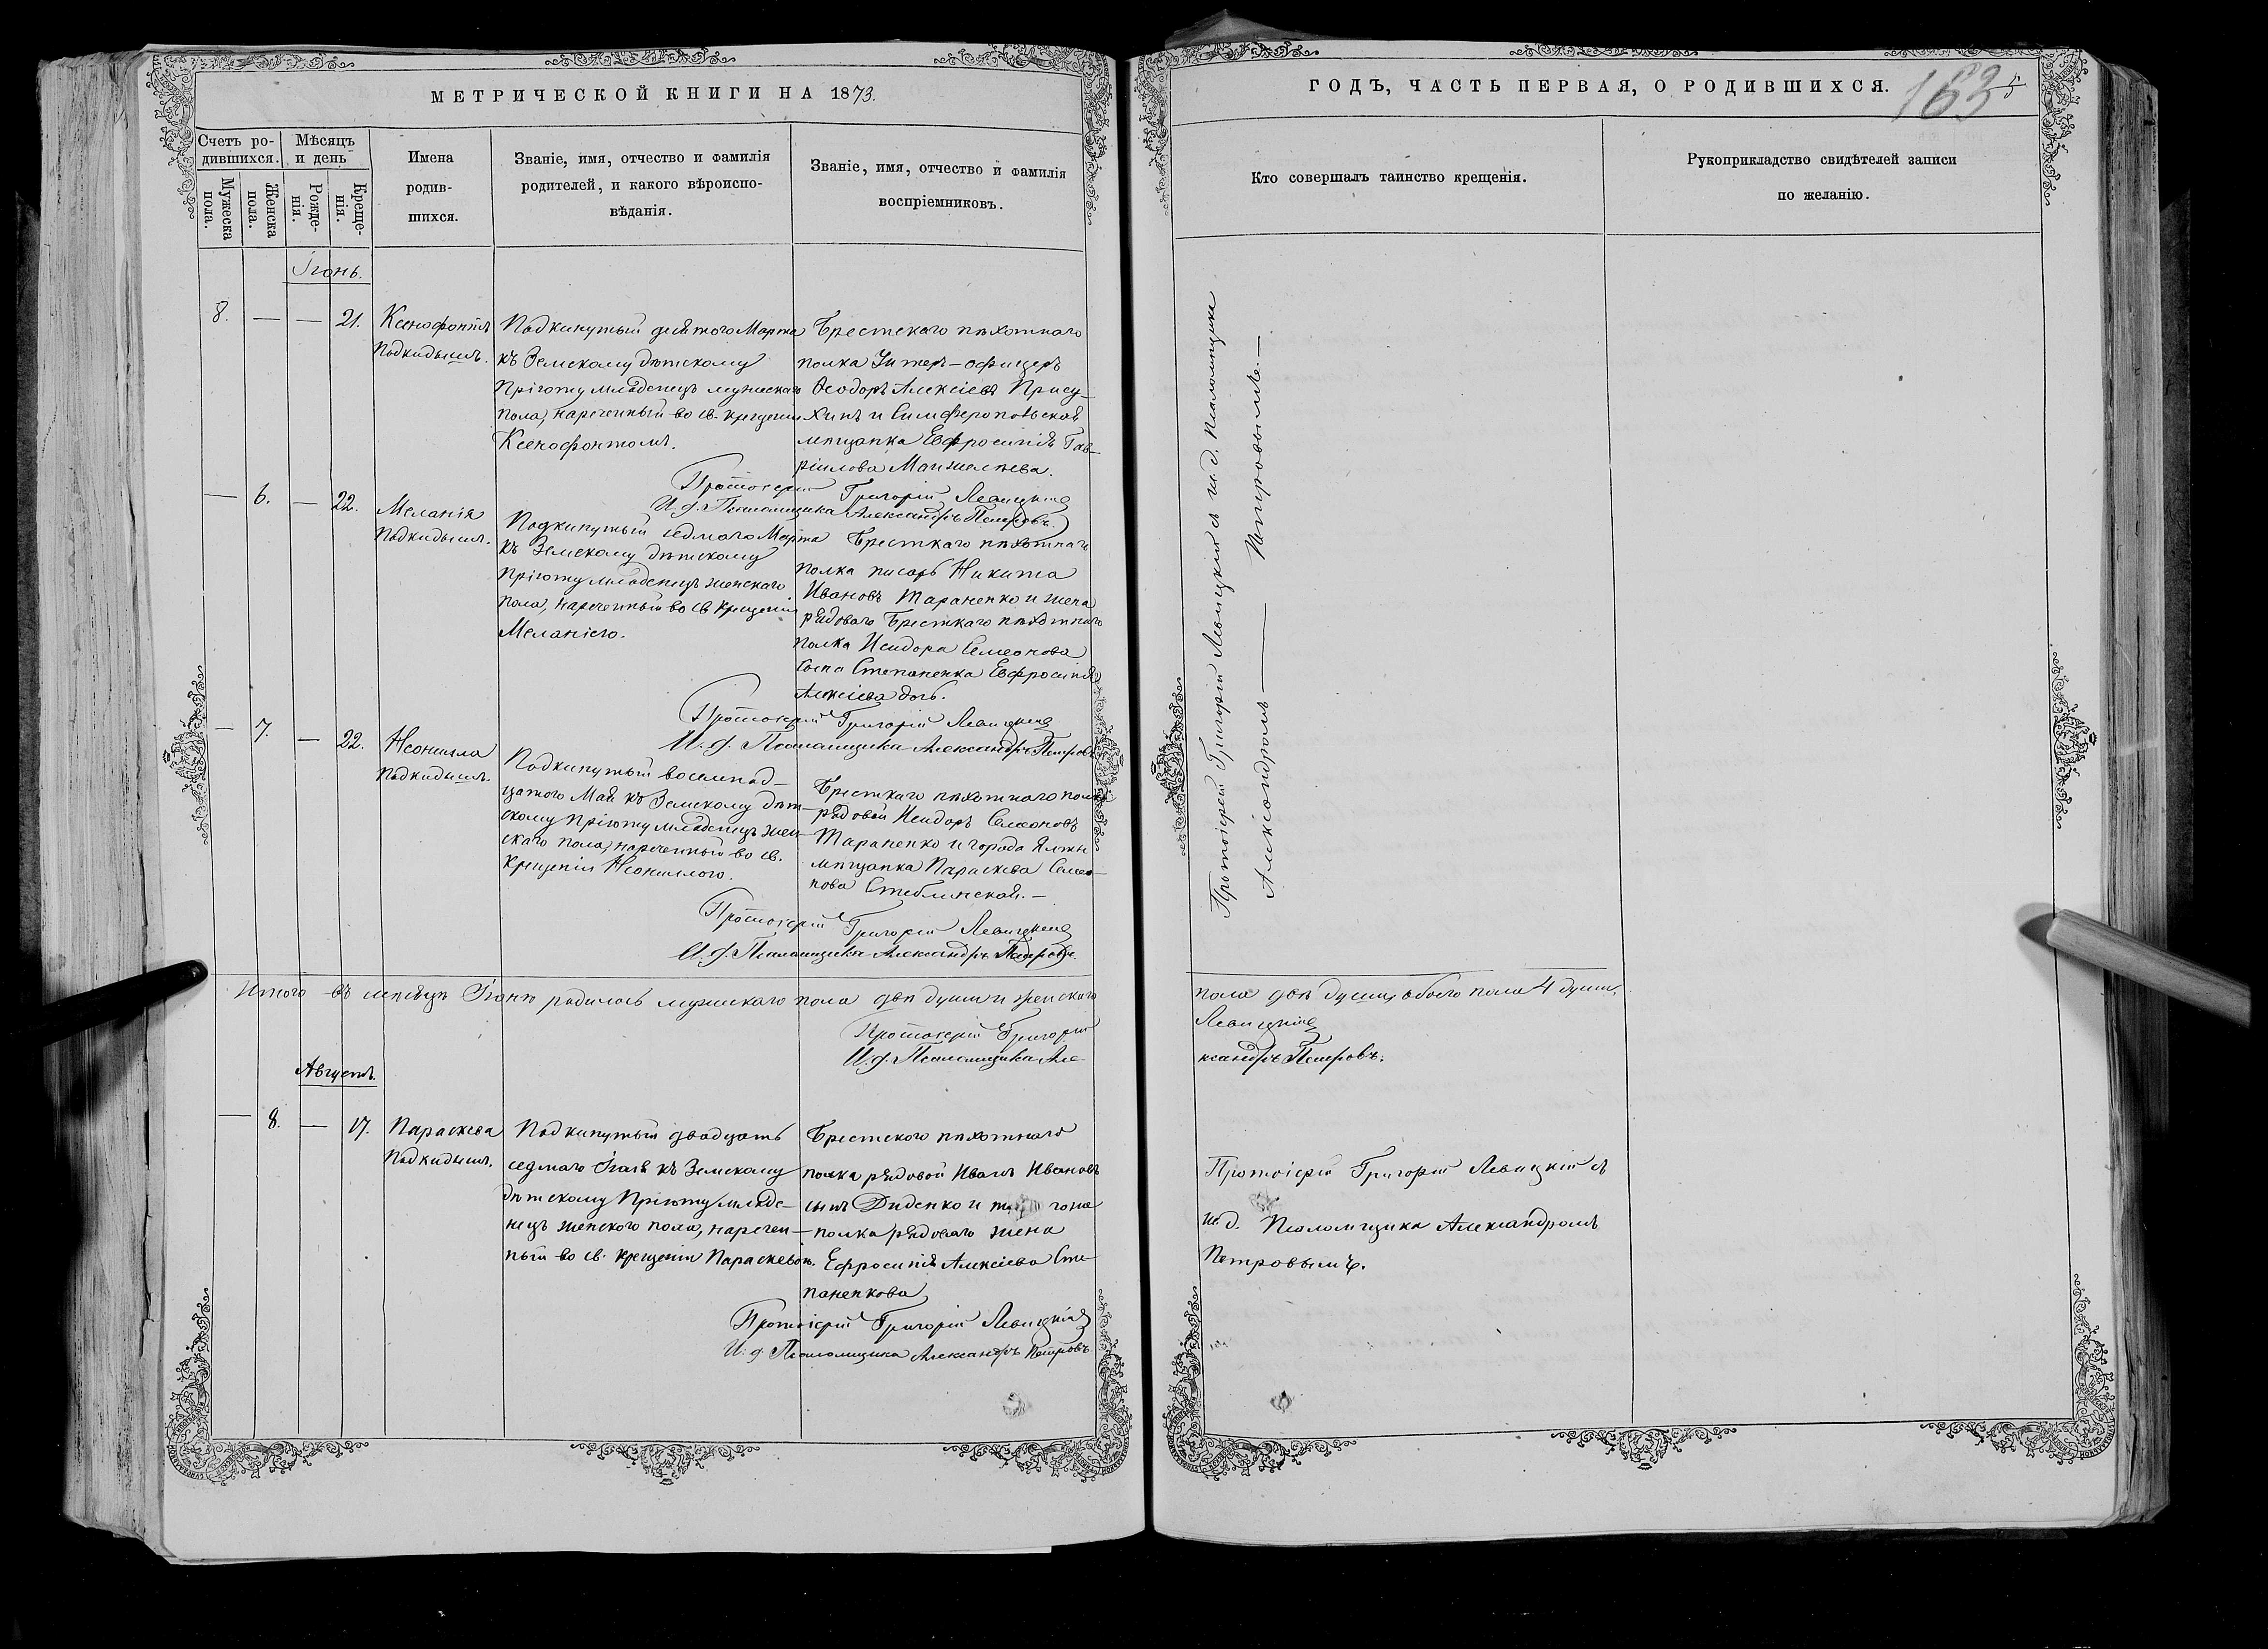 МЕТРИЧЕСКОЙ КНИГИ НА 1873.
Счетъ ро-
дившихся.
Мѣсяцъ
и день
Мужеска
пола.
Женска
пола.
Рожде-
нія.
Креще-
нія.
Имена
родив-
шихся.
Званіе, имя, отчество и фамилія
родителей, и какого вѣроиспо-
вѣданія.
Званіе, имя, отчество и фамилія
воспріемниковъ.
Іюнь.
8. — — 21.
Ксенофонтъ
Подкидышъ.
Подкинутый девятого Марта
къ Земскому дѣтскому
Пріюту младенецъ мужескаго
пола, нареченный во св. крещеніи
Ксенофонтомъ.
Брестскаго пѣхотнаго
полка Унтеръ-офицеръ
Ѳеодоръ Алексіевъ Прису-
хинъ и Симферопольская
мѣщанка Евфросинія Гав-
ріилова
Протоіерей Григорій Левицкій
И. д. Псаломщика Александръ Петровъ.
— 6. — 22.
Меланія
Подкидышъ.
Подкинутый седмого Марта
къ Земскому дѣтскому
Пріюту младенецъ женскаго
пола, нареченный во св крещеніи
Меланіею.
Бресткаго пѣхотнаго
полка писарь Никита
Ивановъ Тараненко и жена
рядоваго Бресткаго пѣхотнаго
полка Исидора Семеонова
сына Степаненка Евфросинія
Алексіева дочь.
Протоіерей Григорій Левицкій
И. д. Псаломщика Александръ Петровъ
— 7. — 22.
Неонилла
Подкидышъ.
Подкинутый восемнад-
цатого Мая къ Земскому дѣт-
скому Пріюту младенецъ жен-
скаго пола, нареченный во св.
крещеніи Неониллою.
Бресткаго пѣхотнаго полка
рядовой Исидоръ Семеоновъ
Тараненко и города Ялты
мѣщанка Параскева Семео-
нова Стеблинская.—
Протоіерей Григорій Левицкій
И. д. Псаломщика Александръ Петровъ.
Итого въ мѣсяцѣ Іюнѣ родилось мужскаго пола двѣ души и женскаго
Протоіерей Григорій
И. д. Псаломщика Але-
Августъ.
— 8. — 17.
Параскева
Подкидышъ.
Подкинутый двадцать
седмаго Іюля къ Земскому
дѣтскому Пріюту младе-
нецъ женского пола, наречен-
ный во св. крещеніи Параскевою.
Брестского пѣхотнаго
полка рядовой Иванъ Ивановъ
сынъ Диденко и
полка рядоваго жена
Ефросинія Алексіева Сте-
паненкова
Протоіерей Григорій Левицкій
И. д. Псаломщика Александръ Петровъ
ГОДЪ, ЧАСТЬ ПЕРВАЯ, О РОДИВШИХСЯ.
163
Кто совершалъ таинство крещенія.
Рукоприкладство свидѣтелей записи
по желанію.
Протоіерей Григорій Левицкій съ и. д. Псаломщика
Александромъ — Петровымъ.—
пола двѣ души, обоего пола 4 души.
Левицкій
ксандръ Петровъ.
Протоіерей Григорій Левицкій съ
и. д. Псаломщика Александромъ
Петровымъ.